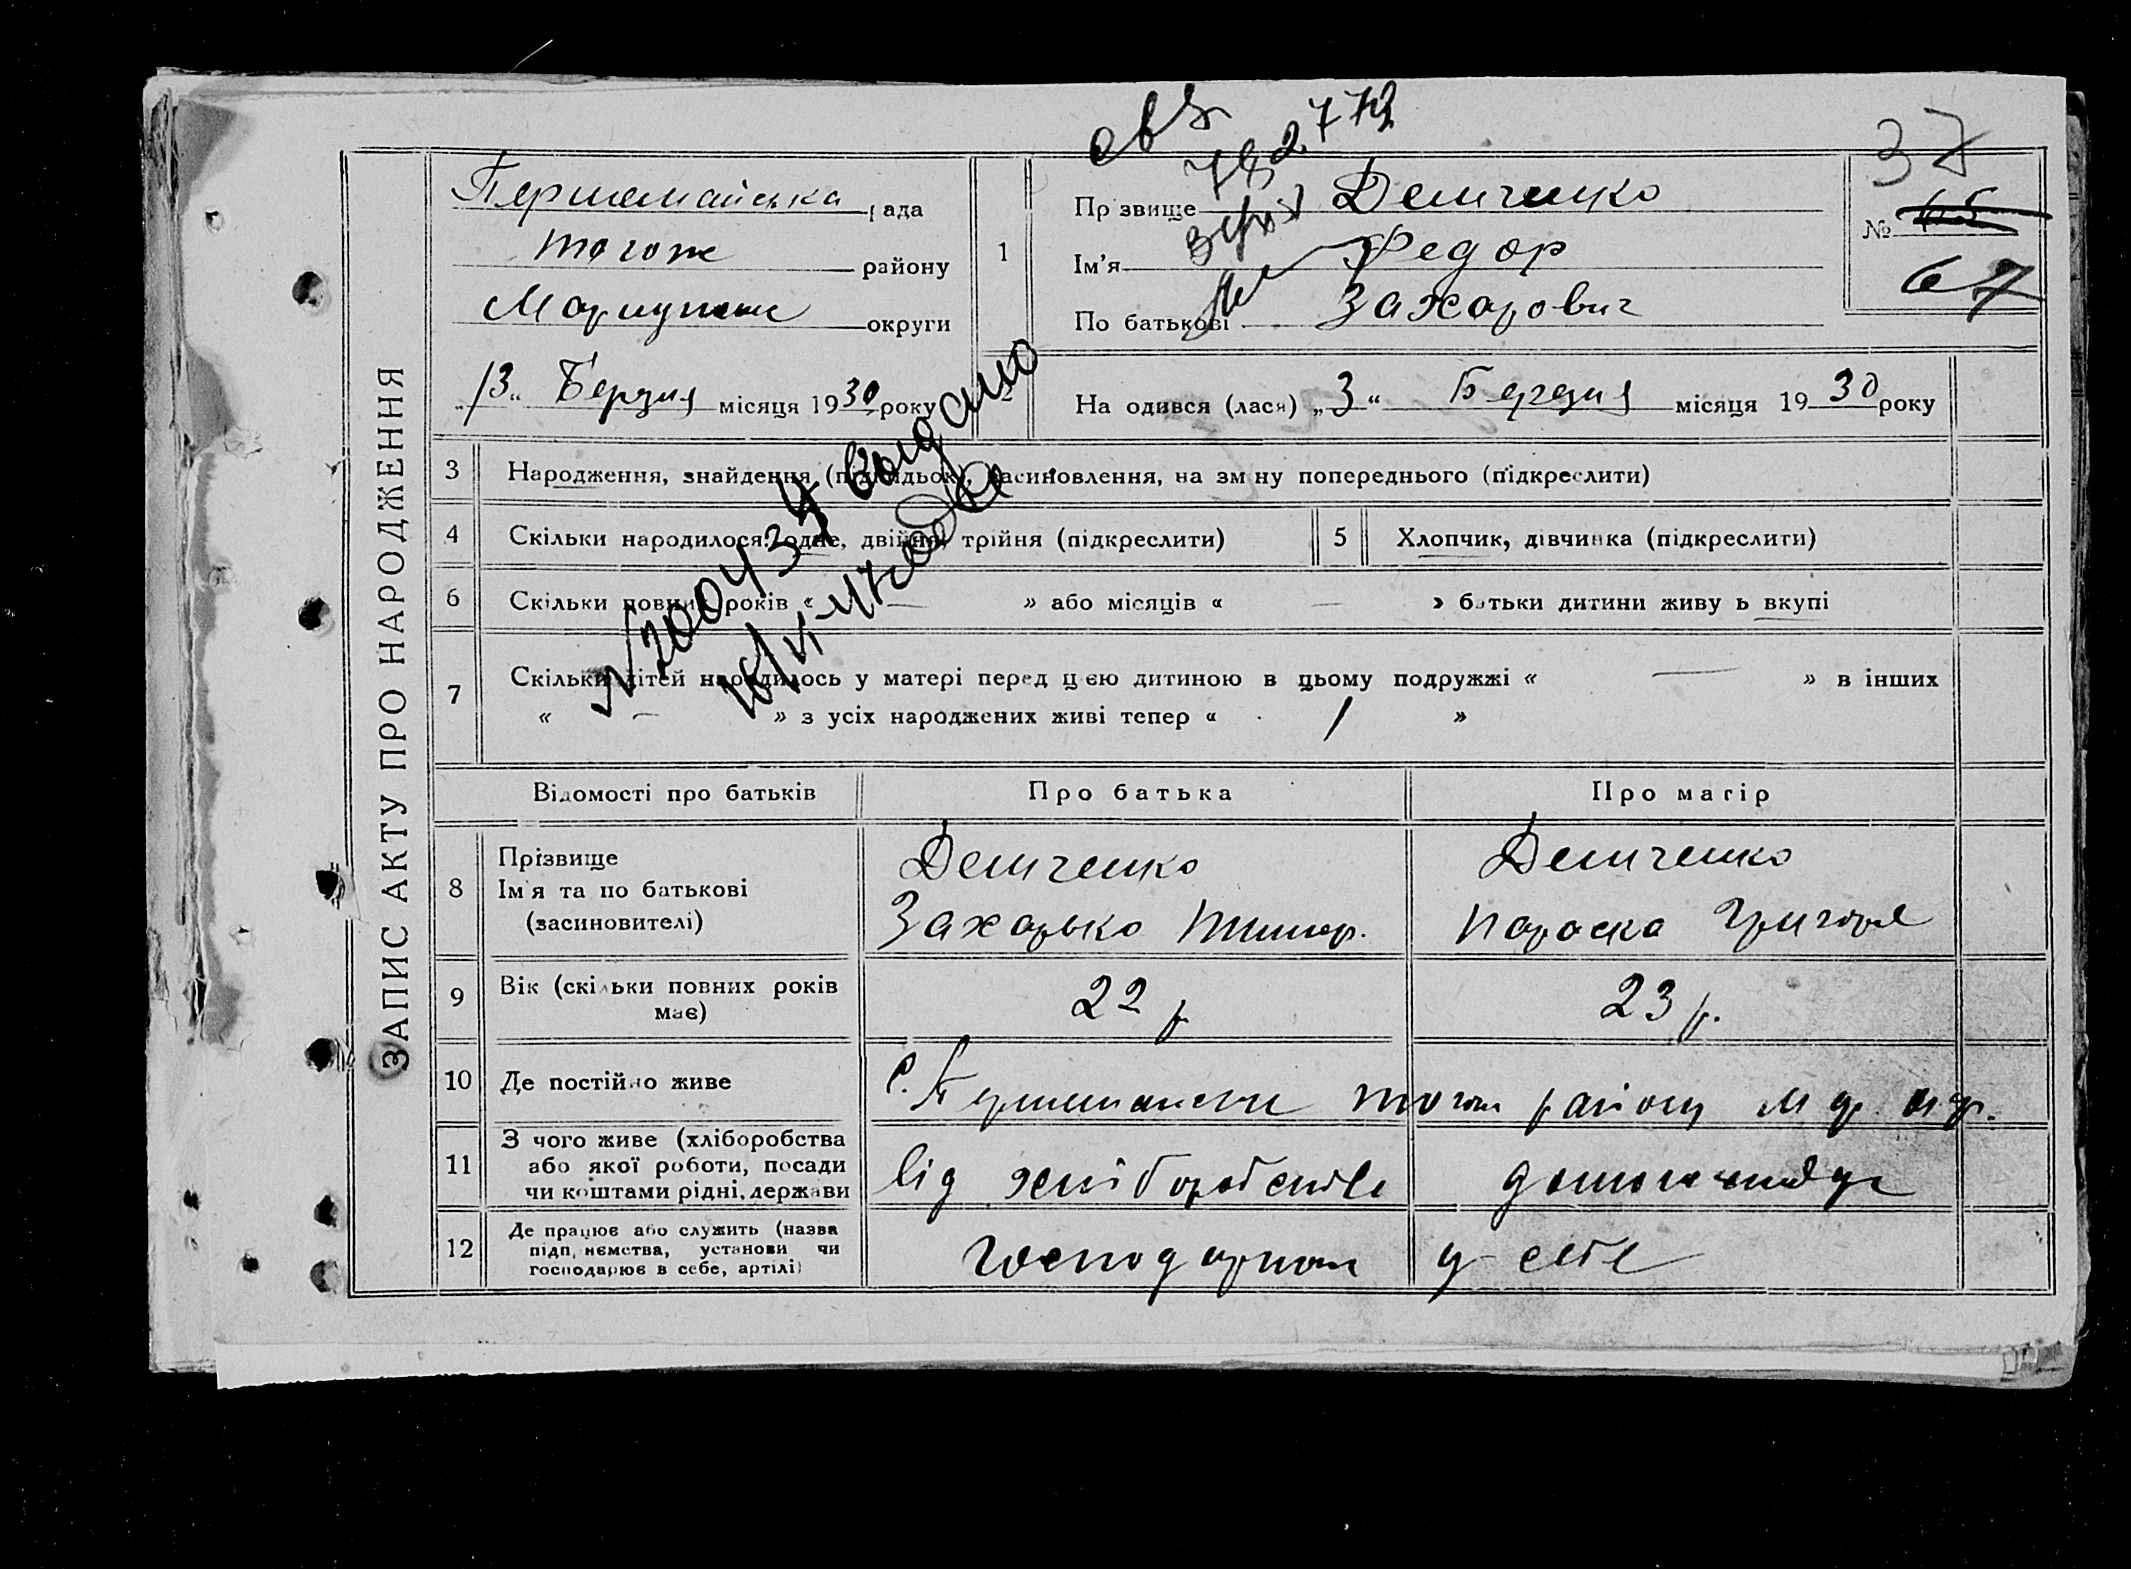 ЗАПИС АКТУ ПРО НАРОДЖЕННЯ
37
№
67
Першемайська рада
тогож району
Маріупіль округи
"13" Березня місяця 1930 року
1
Прізвище Демченко
Ім'я Федор
По батькові Захарович
2
На одився (лася) „3“ Березня місяця 1930 року
№ 200434 выдано
3 Народження, знайдення (підкидьок), засиновлення, на зміну попереднього (підкреслити)
4 Скільки народилося: одне, двійня, трійня (підкреслити)
5 Хлопчик, дівчинка (підкреслити)
6 Скільки повних років « — » або місяців « — » батьки дитини живуть вкупі
7 Скільки дітей народилось у матері перед цією дитиною в цьому подружжі « — » в інших
« — » з усіх народжених живі тепер « 1 »
Відомості про батьків Про батька Про матір
8 Прізвище
Ім'я та по батькові
(засиновителі)
Демченко
Захарько
Демченко
Параска Григор
9 Вік (скільки повних років
має)
22 р
23 р.
10 Де постійно живе
с. тогож району
11 З чого живе (хліборобства
або якої роботи, посади
чи коштами рідні, держави
від хліборобства
12 Де працює або служить (назва
підприємства, установи чи
господарює в себе, артілі)
у себе